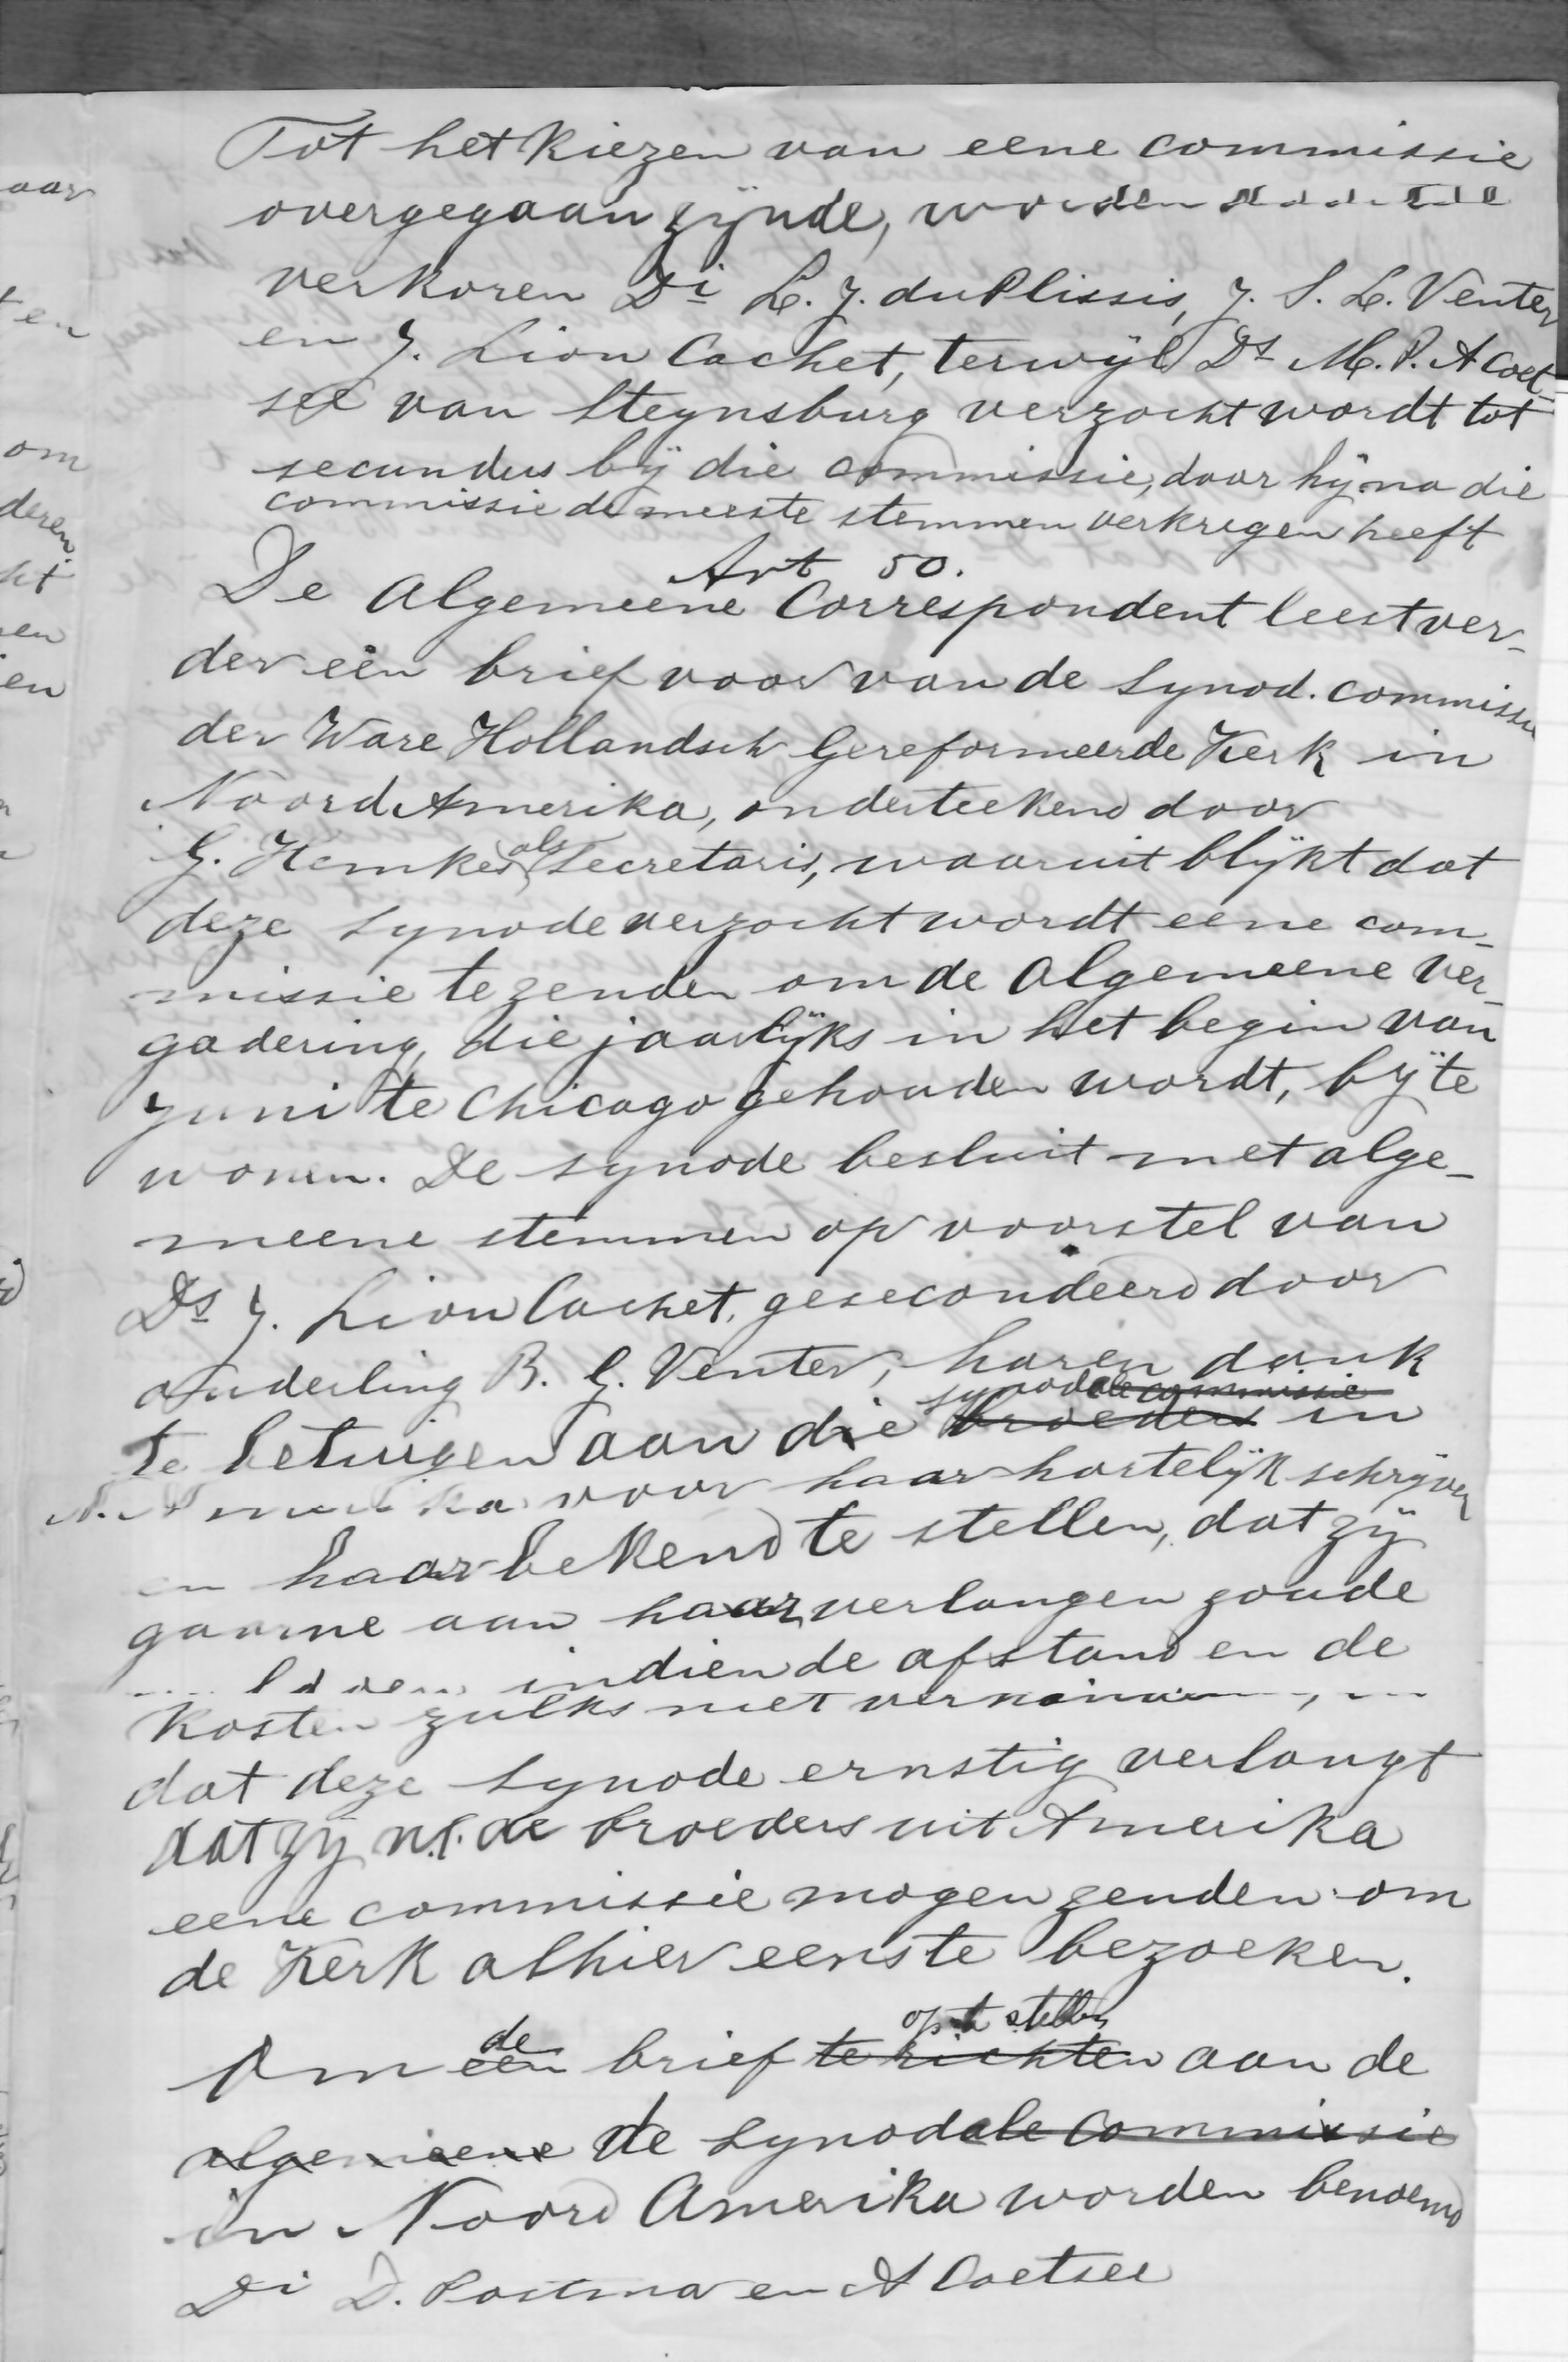 Tot het kiezen van eene commissie
overgegaan zÿnde, worden
verkoren Di L. J. du Plissis, J. S. L. Venter
en J. Lion Cachet, terwÿl Ds M. P. A Coet-
see van Steynsburg verzocht wordt tot
secundus bÿ die commissie, daar hÿ na die
commissie de meeste stemmen verkregen heeft
Art 50.
De Algemeene Correspondent leest ver-
der een brief voor van de Synod. commissie
der Ware Hollandsch Gereformeerde Kerk in
Noord Amerika, onderteekend door
G. Hemkes als Secretaris, waaruit blÿkt dat
deze synode verzocht wordt eene com-
missie te zenden om de Algemeene Ver-
gadering, die jaarlÿks in het begin van
Juni te Chicago gehouden wordt, bÿ te
wonen. De synode besluit met alge-
meene stemmen op voorstel van
Ds J. Lion Cachet, gesecondeerd door
ouderling B. G. Venter, haren dank
synodale commissie
te betuigen aan die broeders in
N. Amerika voor haar hartelÿk schrÿven
en haar bekend te stellen, dat zÿ
gaarne aan haar verlangen zoude
indien de afstand en de
kosten zulks niet
dat deze synode ernstig verlangt
dat zÿ n.l. de broeders uit Amerika
eene commissie mogen zenden om
de Kerk alhier eens te bezoeken.
de op te stellen
Om een brief te richten aan de
algemeene de Synodale Commissie
in Noord Amerika worden benoemd
Di D. Postma en A Coetsee
aar
ten
om
deren
ht
en
ien